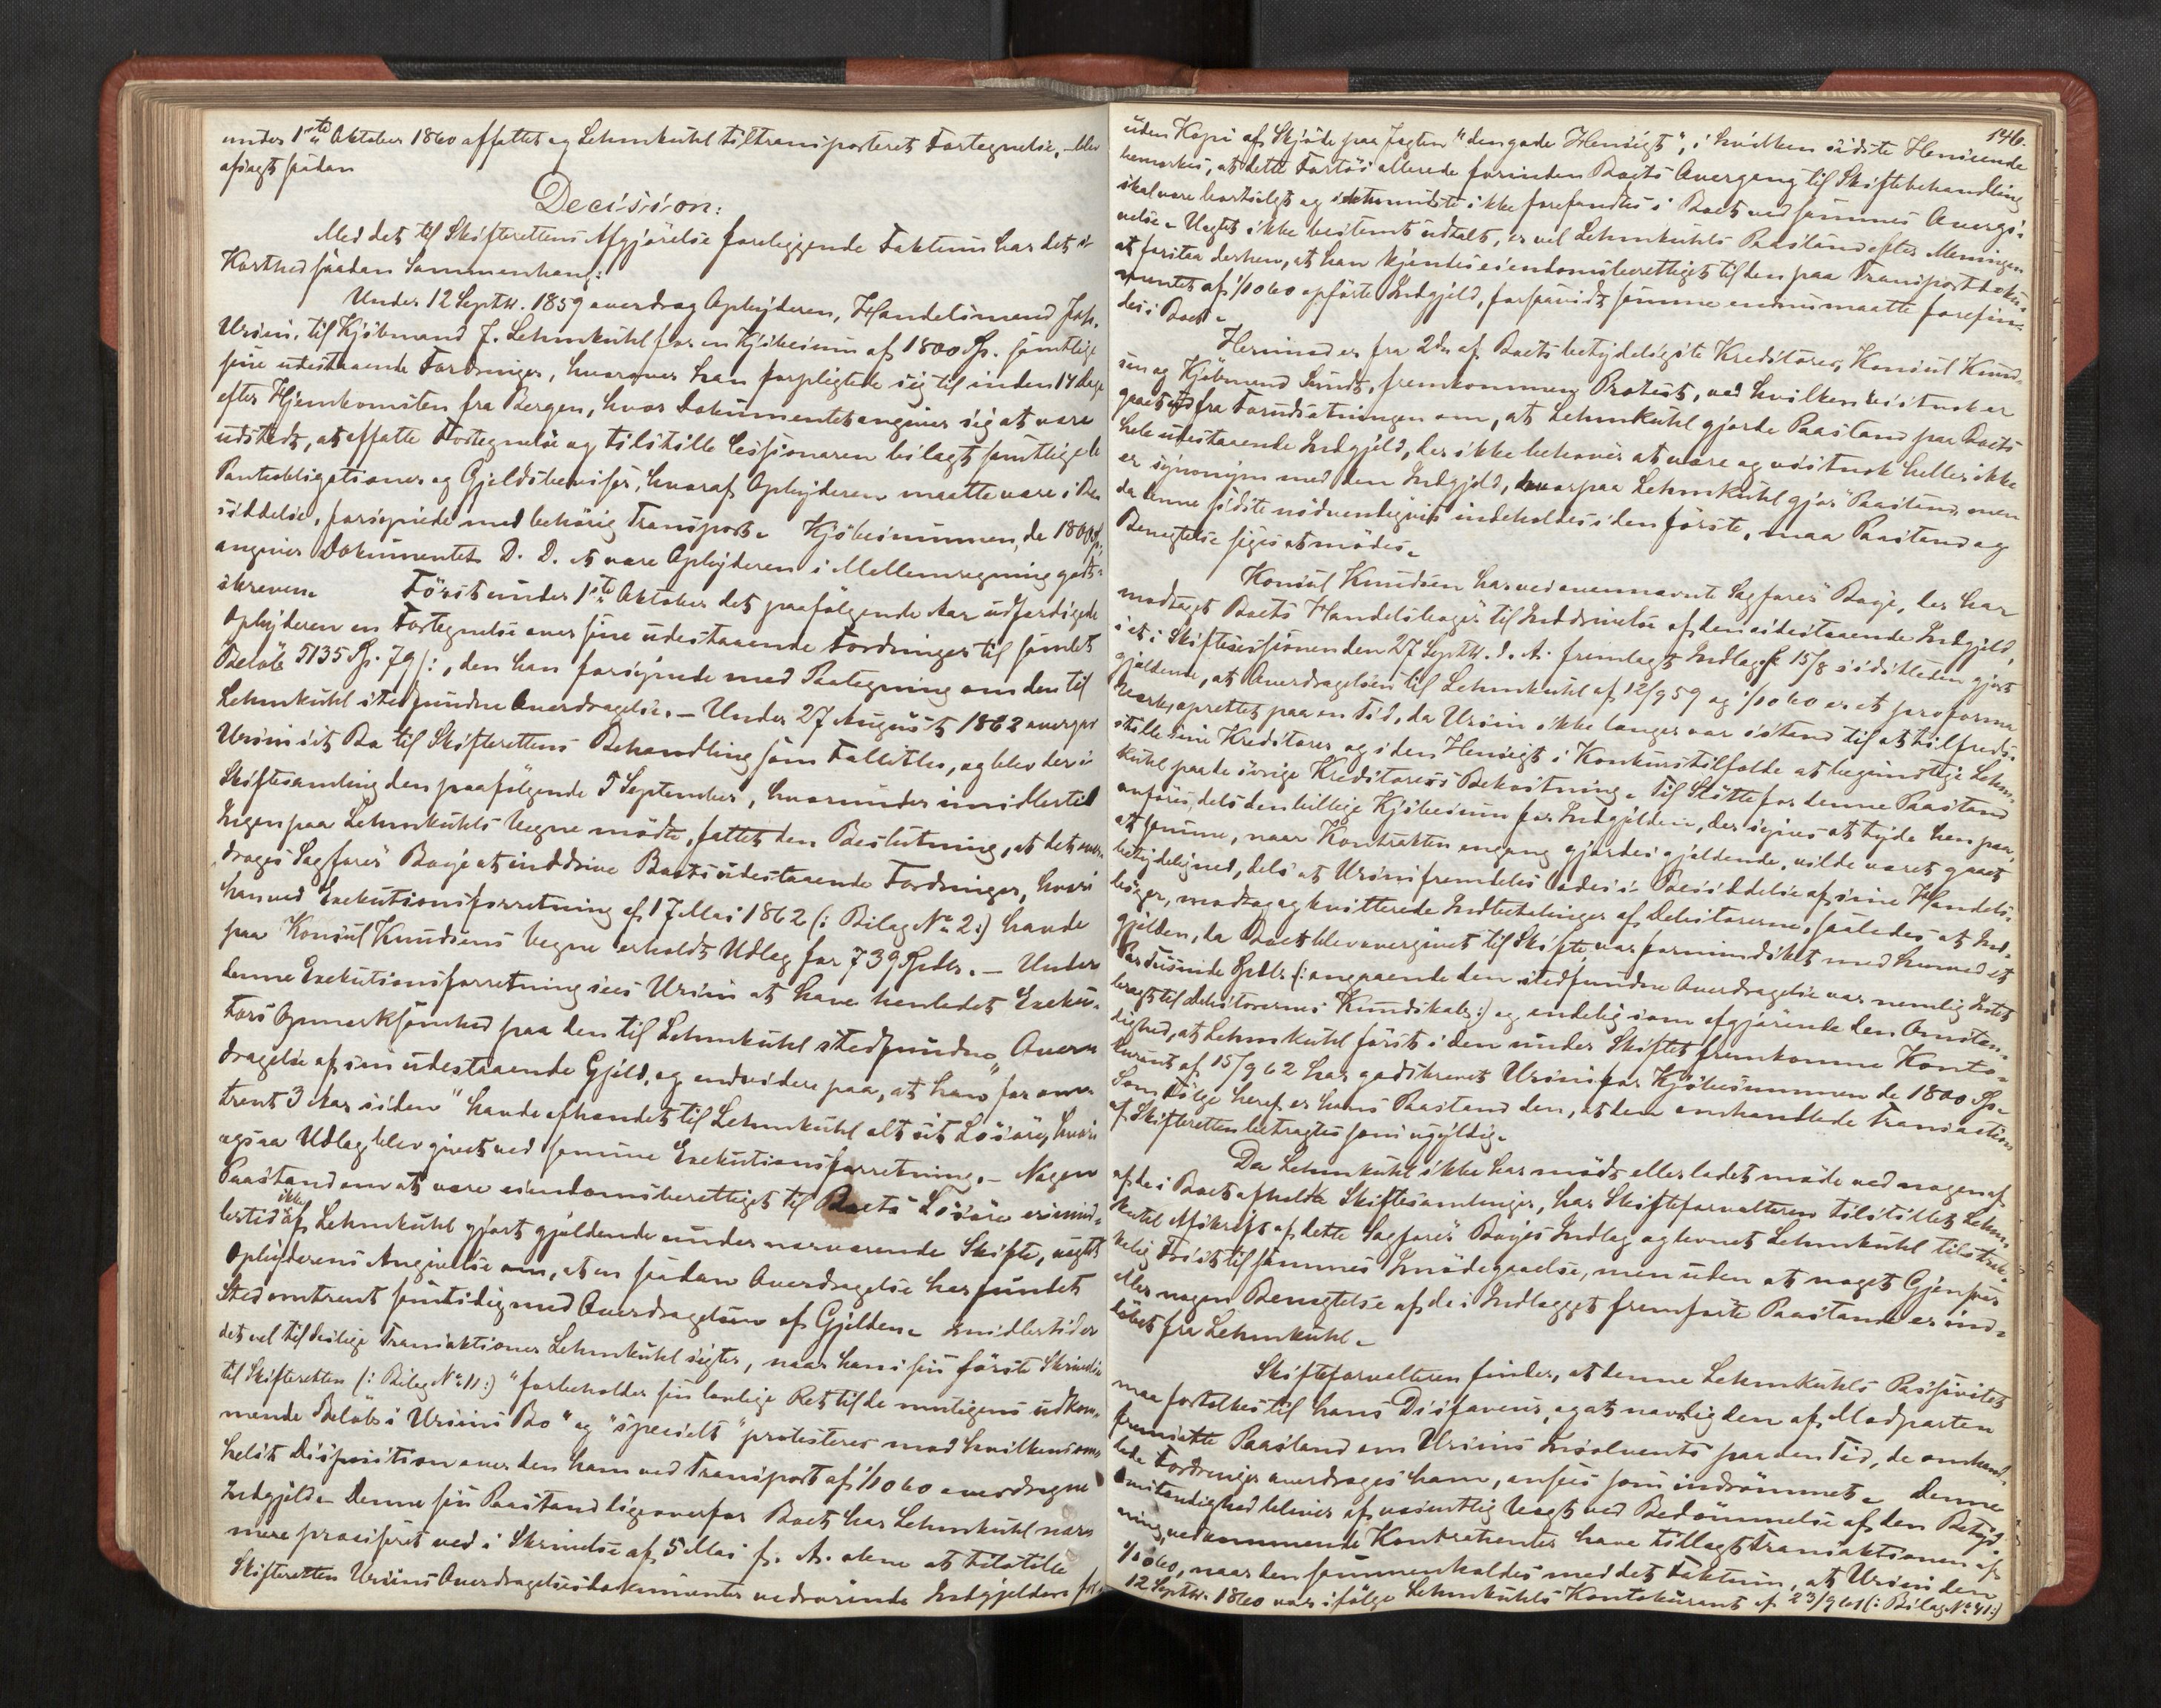 under 1ste Oktober 1860 affattet og Lehmkuhl tiltransporteret Fortegnelse, – blev
afsagt saadan
Decision:
Med det til Skifterettens Afgjørelse foreliggende Faktum har det i
Korthed saadan Sammenhæng:
Under 12 Septbr. 1859 overdrog Opbyderen, Handelsmand Joh.
Ursin, til Kjøbmand J. Lehmkuhl for en Kjøbesum af 1800 Sp. samtlige
sine udestaaende Fordringer, hvorover han forpligtede sig til inden 14 Dage
efter Hjemkomsten fra Bergen, hvor Dokumentet angiver sig at være
udstedt, at affatte Fortegnelse og tilstille Cessionaren bilagt samtlige de
Panteobligationer og Gjeldsbeviser, hvoraf Opbyderen maatte være i Be-
siddelse, forsynede med behørig Transport. Kjøbesummen, de 1800 Sp.
angiver Dokumentet D. D. at være Opbyderen i Mellemregning godt-
skreven. Først under 1ste Oktober det paafølgende Aar udfærdigede
Opbyderen en Fortegnelse over sine udestaaende Fordringer til samlet
Beløb 5135 Sp. 79 s:, den han forsynede med Paategning om den til
Lehmkuhl stedfundne Overdragelse. – Under 27 August 1862 overgav
Ursin sit Bo til Skifterettens Behandling som Fallitbo, og blev der i
Skiftesamling den paafølgende 5 September, hvorunder imidlertid
Ingen paa Lehmkuhls Vegne mødte, fattet den Beslutning, at det over-
drages Sagfører Baye at inddrive Boets udestaaende Fordringer, hvori
han ved Exekutionsforretning af 17 Mai 1862 (: Bilag No 2:) havde
paa Konsul Knudsens Vegne erholdt Udlæg for 739 Spdlr. – Under
denne Exekutionsforretning sees Ursin at have henledet Exeku-
tors Opmærksomhed paa den til Lehmkuhl stedfundne Over-
dragelse af sin udestaaende Gjeld, og endvidere paa, at han "for om-
trent 3 Aar siden" havde afhændet til Lehmkuhl alt sit Løsøre, hvori
ogsaa Udlæg blev givet ved samme Exekutionsforretning. – Nogen
Paastand om at være eiendomsberettiget til Boets Løsøre er imid-
lertid ikke af Lehmkuhl gjort gjældende under nærværende Skifte, uagtet
Opbyderens Angivelse om, at en saadan Overdragelse har fundet
Sted omtrent samtidig med Overdragelsen af Gjelden. Imidlertid er
det vel til deslige Transaktioner Lehmkuhl sigter, naar han i sin første Skrivelse
til Skifteretten (: Bilag No 11:) "forbeholder sin lovlige Ret til de muligens udkom-
mende Beløb i Ursins Bo" og "specielt" protesterer mod hvilkensom-
helst Disposition over den ham ved Transport af 1/10 60 overdragne
Indgjeld. Denne sin Paastand ligeoverfor Boet har Lehmkuhl nær-
mere præciseret ved i Skrivelse af 5 Mai f. A. alene at tilstille
Skifteretten Ursins Overdragelsesdokumenter vedrørende Indgjelden for-
146.
uden Kopi af Skjøde paa Jagten "den gode Hensigt", i hvilken sidste Henseende
bemærkes, at dette Fartøi allerede forinden Boets Overgang til Skiftebehandling
skal være bortsolgt og idetmindste ikke forefandtes i Boet ved sammes Overgi-
velse. Uagtet ikke bestemt udtalt, er vel Lehmkuhls Paastand efter Meningen
at forstaa derhen, at han kjendes eiendomsberettiget til den paa Transportdoku-
mentet af 1/10 60 opførte Indgjeld, forsaavidt samme endnu maatte forefin-
des i Boet.
Herimod er fra 2de af Boets betydeligste Kreditorer, Konsul Knud-
sen og Kjøbmand Lundt, fremkommen Protest, ved hvilken vistnok er
gaaet ud fra Forudsætningen om, at Lehmkuhl gjorde Paastand paa Boets
hele udestaaende Indgjeld, der ikke behøver at være og vistnok heller ikke
er synonym med den Indgjeld, hvorpaa Lehmkuhl gjør Paastand, men
da denne sidste nødvendigvis indeholdes i den første, maa Paastand og
Benegtelse siges at mødes.
Konsul Knudsen har ved ovennævnte Sagfører Baye, der har
modtaget Boets Handelsbøger til Inddrivelse af den udestaaende Indgjeld,
i et i Skiftesessionen den 27 Septbr. d. A. fremlagt Indlæg af 15/8 sidstleden gjort
gjældende, at Overdragelsen til Lehmkuhl af 12/9 59 og 1/10 60 er et proforma
Værk, oprettet paa en Tid, da Ursin ikke længer var istand til at tilfreds-
stille sine Kreditorer og i den Hensigt i Konkurstilfælde at begunstige Lehm-
kuhl paa de øvrige Kreditorers Bekostning. Til Støtte for denne Paastand
anføres, dels den billige Kjøbesum for Indgjelden, der synes at tyde hen paa,
at samme, naar Kontrakten engang gjordes gjældende, vilde været gaaet
betydelig ned, dels at Ursin fremdeles lodes i Besiddelse af sine Handels-
bøger, modtog og kvitterede Indbetalinger af Debitorerne, saaledes at Ind-
gjelden, da Boet blev overgivet til Skifte, var formindsket med henved et
Par tusinde Spdlr. (: angaaende den stedfundne Overdragelse var nemlig Intet
bragt til Debitorernes Kundskab:) og endelig som afgjørende den Omstæn-
dighed, at Lehmkuhl først i den under Skiftet fremkomne Konto-
kurant af 15/9 62 har godskrevet Ursin for Kjøbesummen de 1800 Sp.
Som Følge heraf er hans Paastand den, at den omhandlede Transaction
af Skifteretten betragtes som ugyldig.
Da Lehmkuhl ikke har mødt eller ladet møde ved nogen af
de i Boet afholdte Skiftesamlinger, har Skifteforvalteren tilstillet Lehm-
kuhl Afskrift af dette Sagfører Bayes Indlæg og levnet Lehmkuhl tilstræk-
kelig Frist til sammes Imødegaaelse, men uden at noget Gjensvar
eller nogen Benegtelse af de i Indlægget fremførte Paastande er ind-
løbet fra Lehmkuhl.
Skifteforvalteren finder, at denne Lehmkuhls Passivitet
maa fortolkes til hans Disfaveur, og at navnlig den af Modparten
fremsatte Paastand om Ursins Insolvents paa den Tid, de omhand-
lede Fordringer overdroges ham, ansees som indrømmet. Denne
Omstændighed bliver af væsentlig Vægt ved Bedømmelse af den Betyd-
ning, vedkommende Kontrahenter have tillagt Transaktionen af
1/10 60, naar den sammenholdes med det Faktum, at Ursin den
12 Septbr. 1860 var ifølge Lehmkuhls Kontokurant af 23/9 61 (: Bilag No 41:)